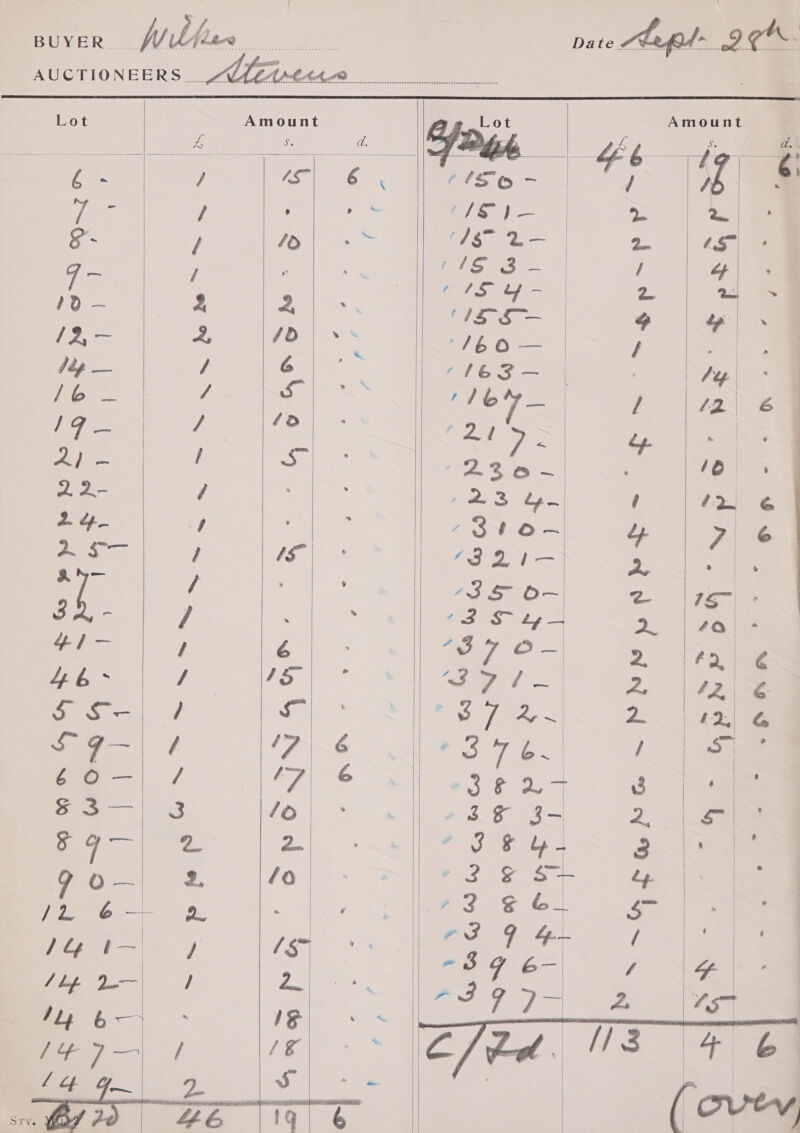 BUYER Wilkes Date Sept 29th
AUCTIONEERS Stevens
Lot Amount
£ s. d.
6 - 1 15 6
7 - 1 . .
8 - 1 10 .
9 - 1 . .
10 - 2 2 .
12 - 2 10 .
14 - 1 6 .
16 - 1 5 .
19 - 1 10 .
21 - 1 5 .
22 - 1 . .
24 - 1 . .
25 - 1 15 .
27 - 1 . .
32 - 1 . .
41 - 1 6 .
46 - 1 15 .
55 - 1 5 .
59 - 1 17 6
60 - 1 17 6
83 - 3 10 .
89 - 2 2 .
90 - 2 10 .
126 - 2 . .
141 - 1 15 .
142 - 1 2 .
146 - . 18 .
147 - 1 18 .
149 - 2 5 .
Sty. 46 19 6
Lot Amount
£ s. d.
46 19 6
150 - 1 16 .
151 - 2 2 .
152 - 2 15 .
153 - 1 4 .
154 - 2 2 .
155 - 4 4 .
160 - 1 . .
163 - . 14 .
167 - 1 12 6
217 - 4 . .
230 - . 10 .
234 - 1 12 6
310 - 4 7 6
321 - 2 . .
350 - 2 15 .
354 - 2 10 .
370 - 2 12 6
371 - 2 12 6
372 - 2 12 6
376 - 1 5 .
382 - 3 . .
383 - 2 5 .
384 - 3 . .
385 - 4 . .
386 - 5 . .
394 - 1 . .
396 - 1 4 .
397 - 2 15
C/Fd. 113 4 6
(over)